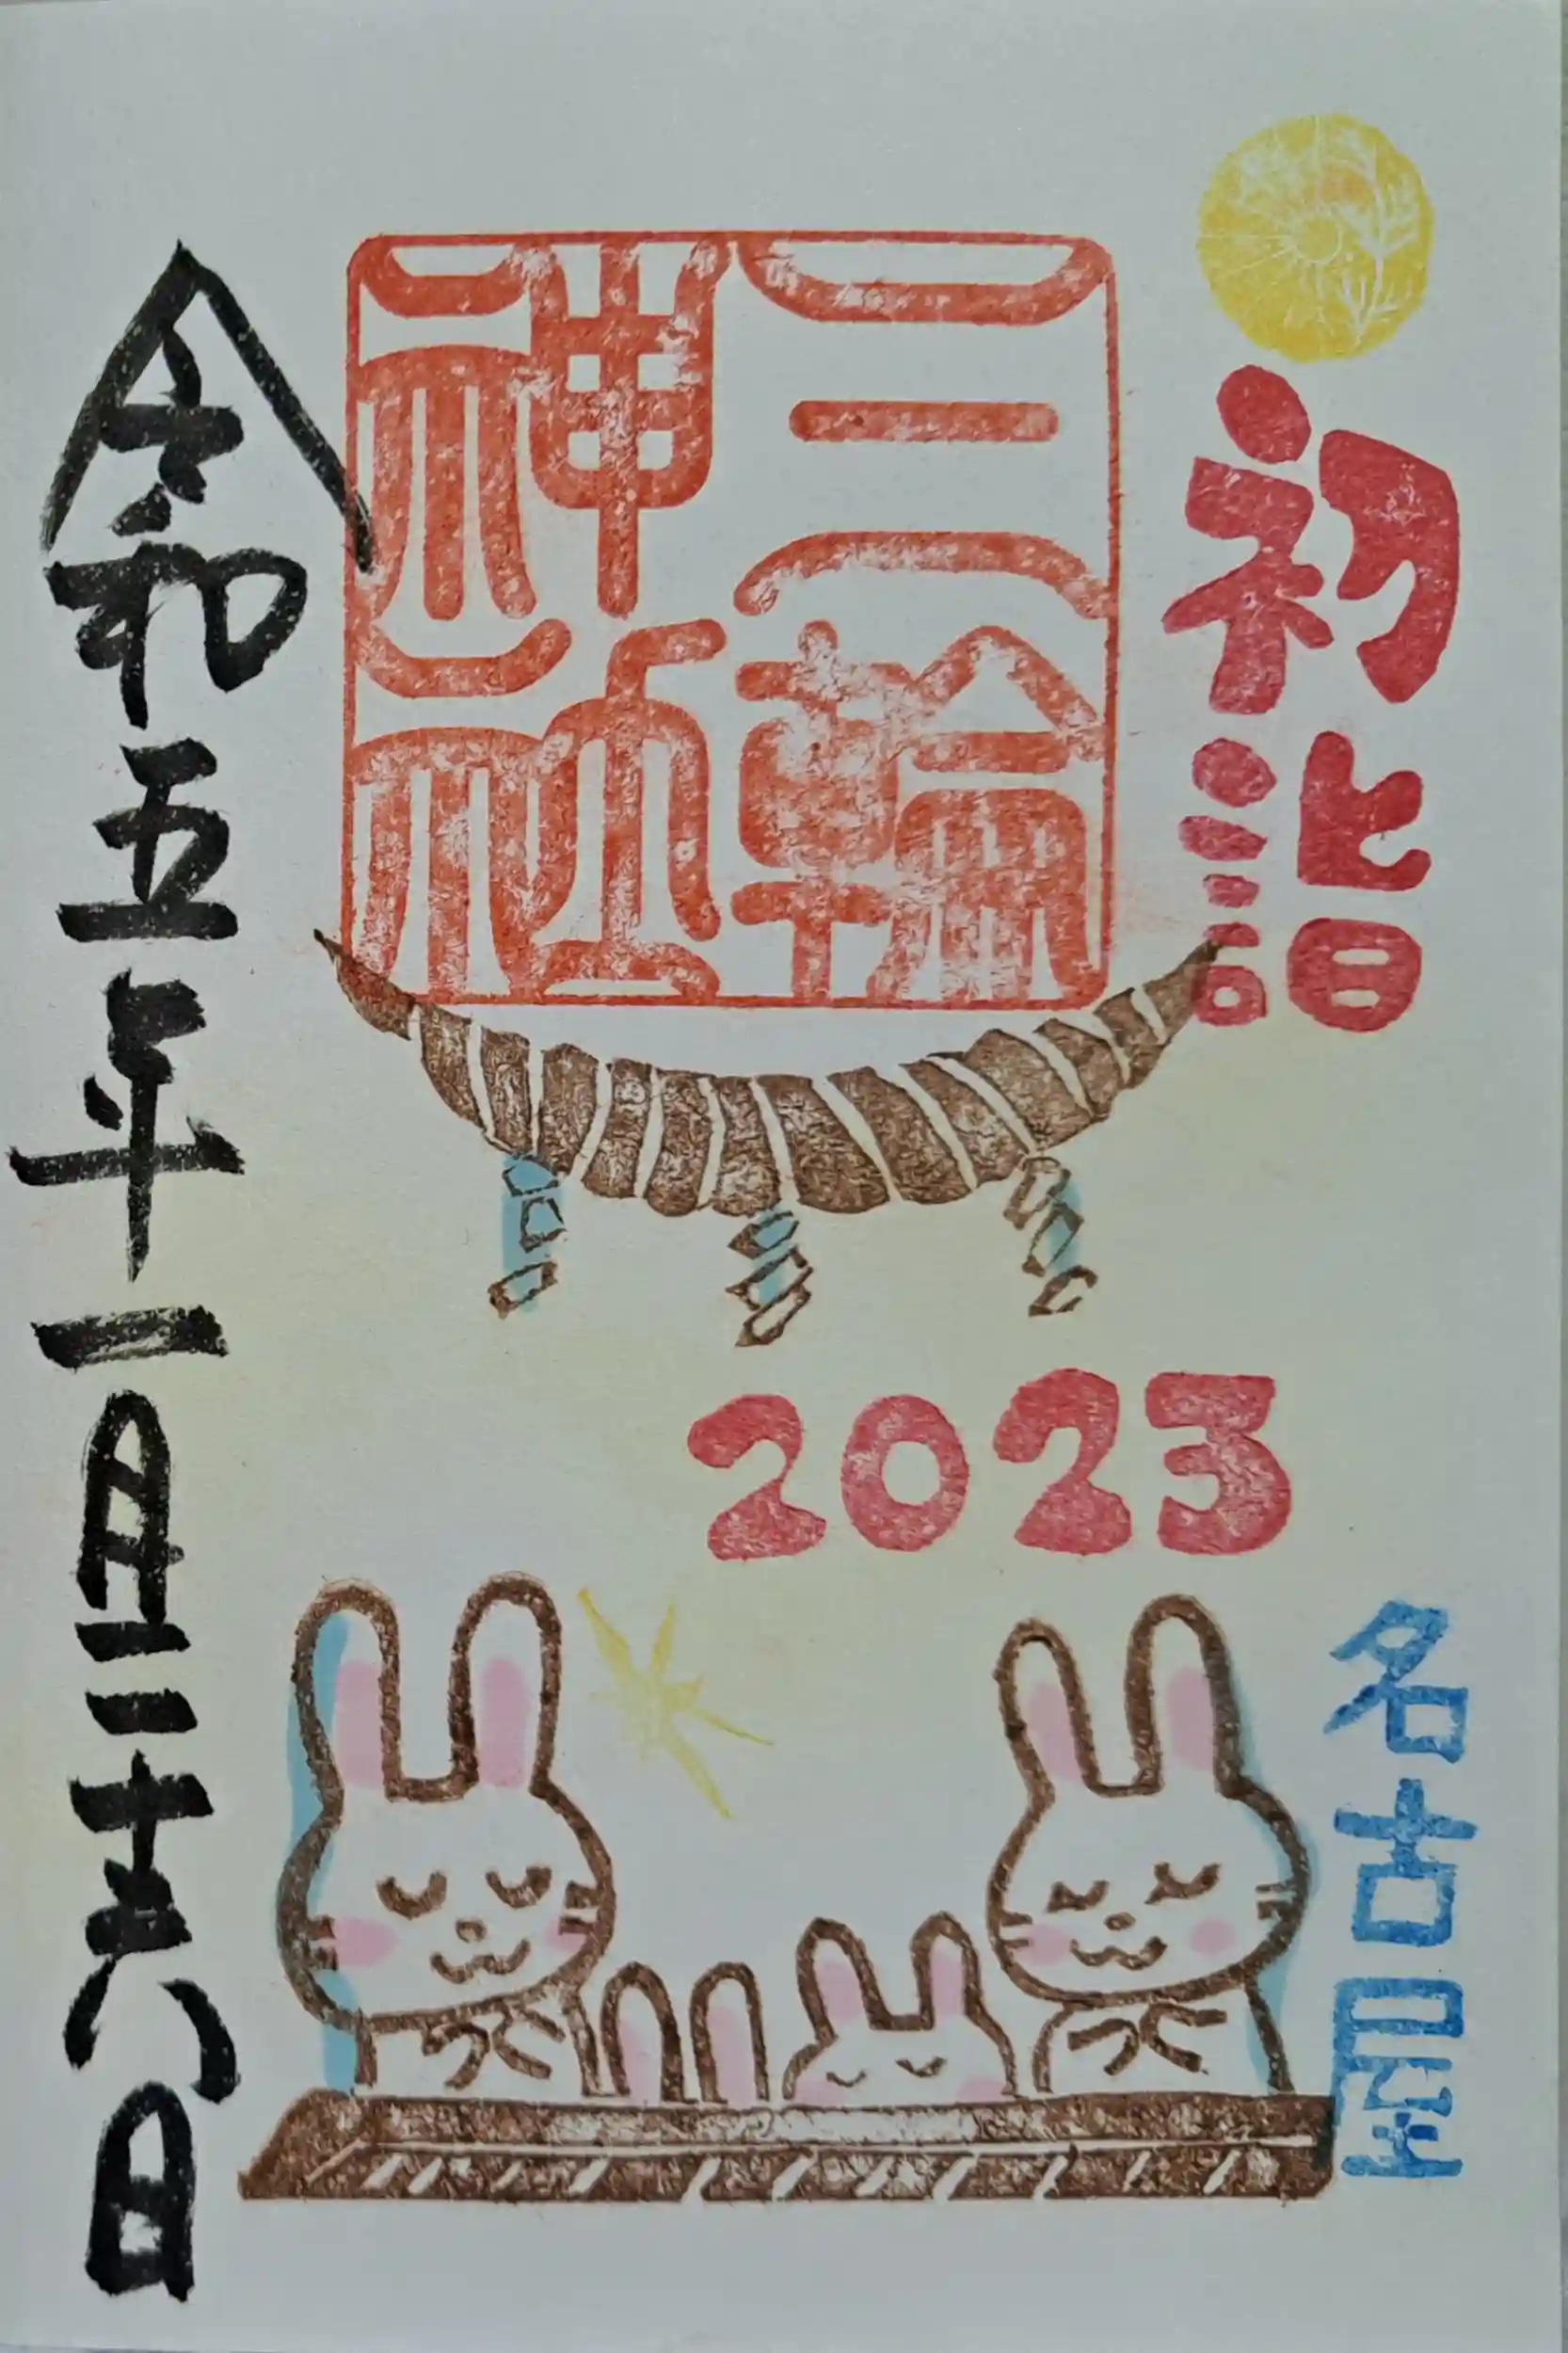 初詣
三輪
神社
2023
名古屋
令和五年一月二十六日